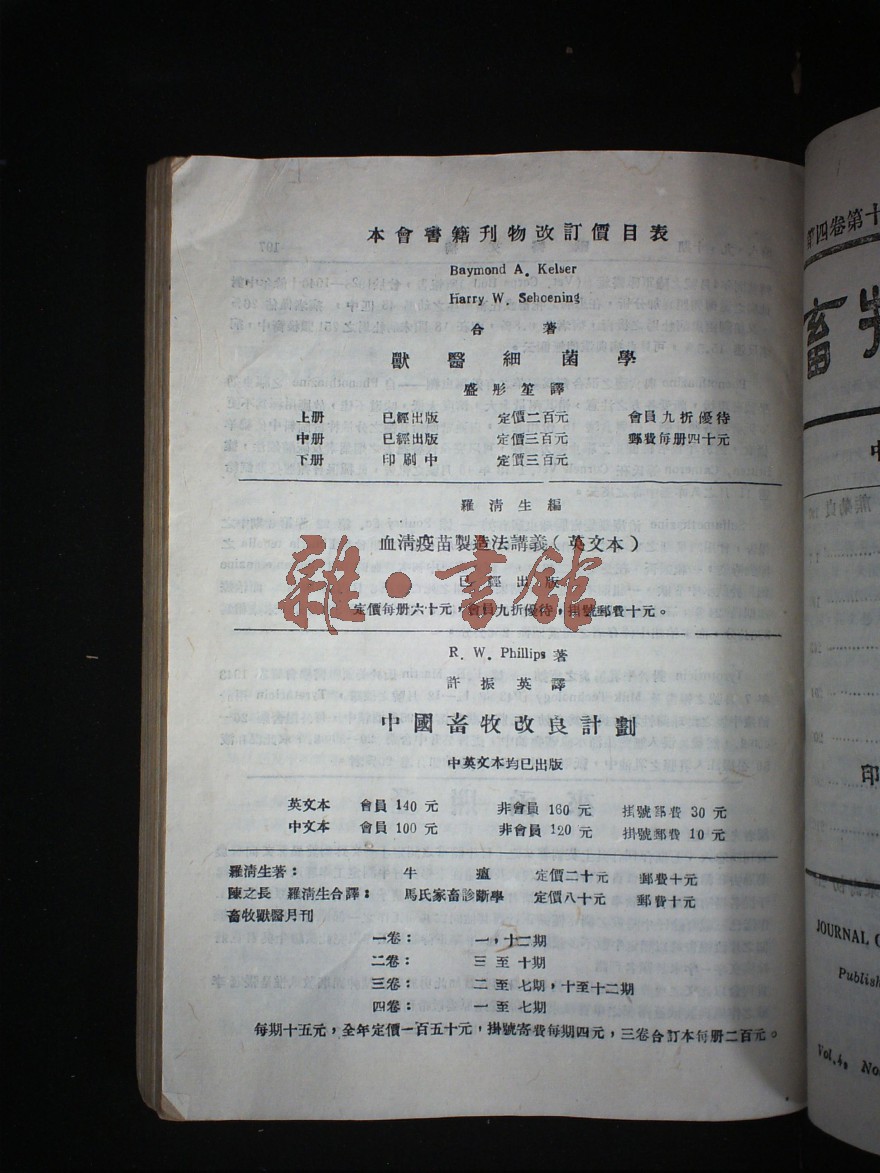 本會書籍刊物改訂價目表
Baymond A. Kelser
Harry W. Sehoening
合著
獸醫細菌學
盛彤笙譯
上册 已經出版 定價二百元 會員九折優待
中册 已經出版 定價三百元 郵費每册四十元
下册 印刷中 定價三百元
羅淸生編
血淸疫苗製造法講義(英文本)
已經出版
定價每册六十元,會員九折優待,掛號郵費十元。
雜·書館
R. W. Phillips 著
許振英譯
中國畜牧改良計劃
中英文本均已出版
英文本 會員 140 元 非會員 160 元 掛號郵費 30 元
中文本 會員 100 元 非會員 120 元 掛號郵費 10 元
羅淸生著: 牛瘟 定價二十元 郵費十元
陳之長 羅淸生合譯: 馬氏家畜診斷學 定價八十元 郵費十元
畜牧獸醫月刊
一卷: 一,十二期
二卷: 三至十期
三卷: 二至七期,十至十二期
四卷: 一至七期
每期十五元,全年定價一百五十元,掛號寄費每期四元,三卷合訂本每册二百元。
四卷第十
畜
中
印
JOURNAL
Publis
Vol.4, No.